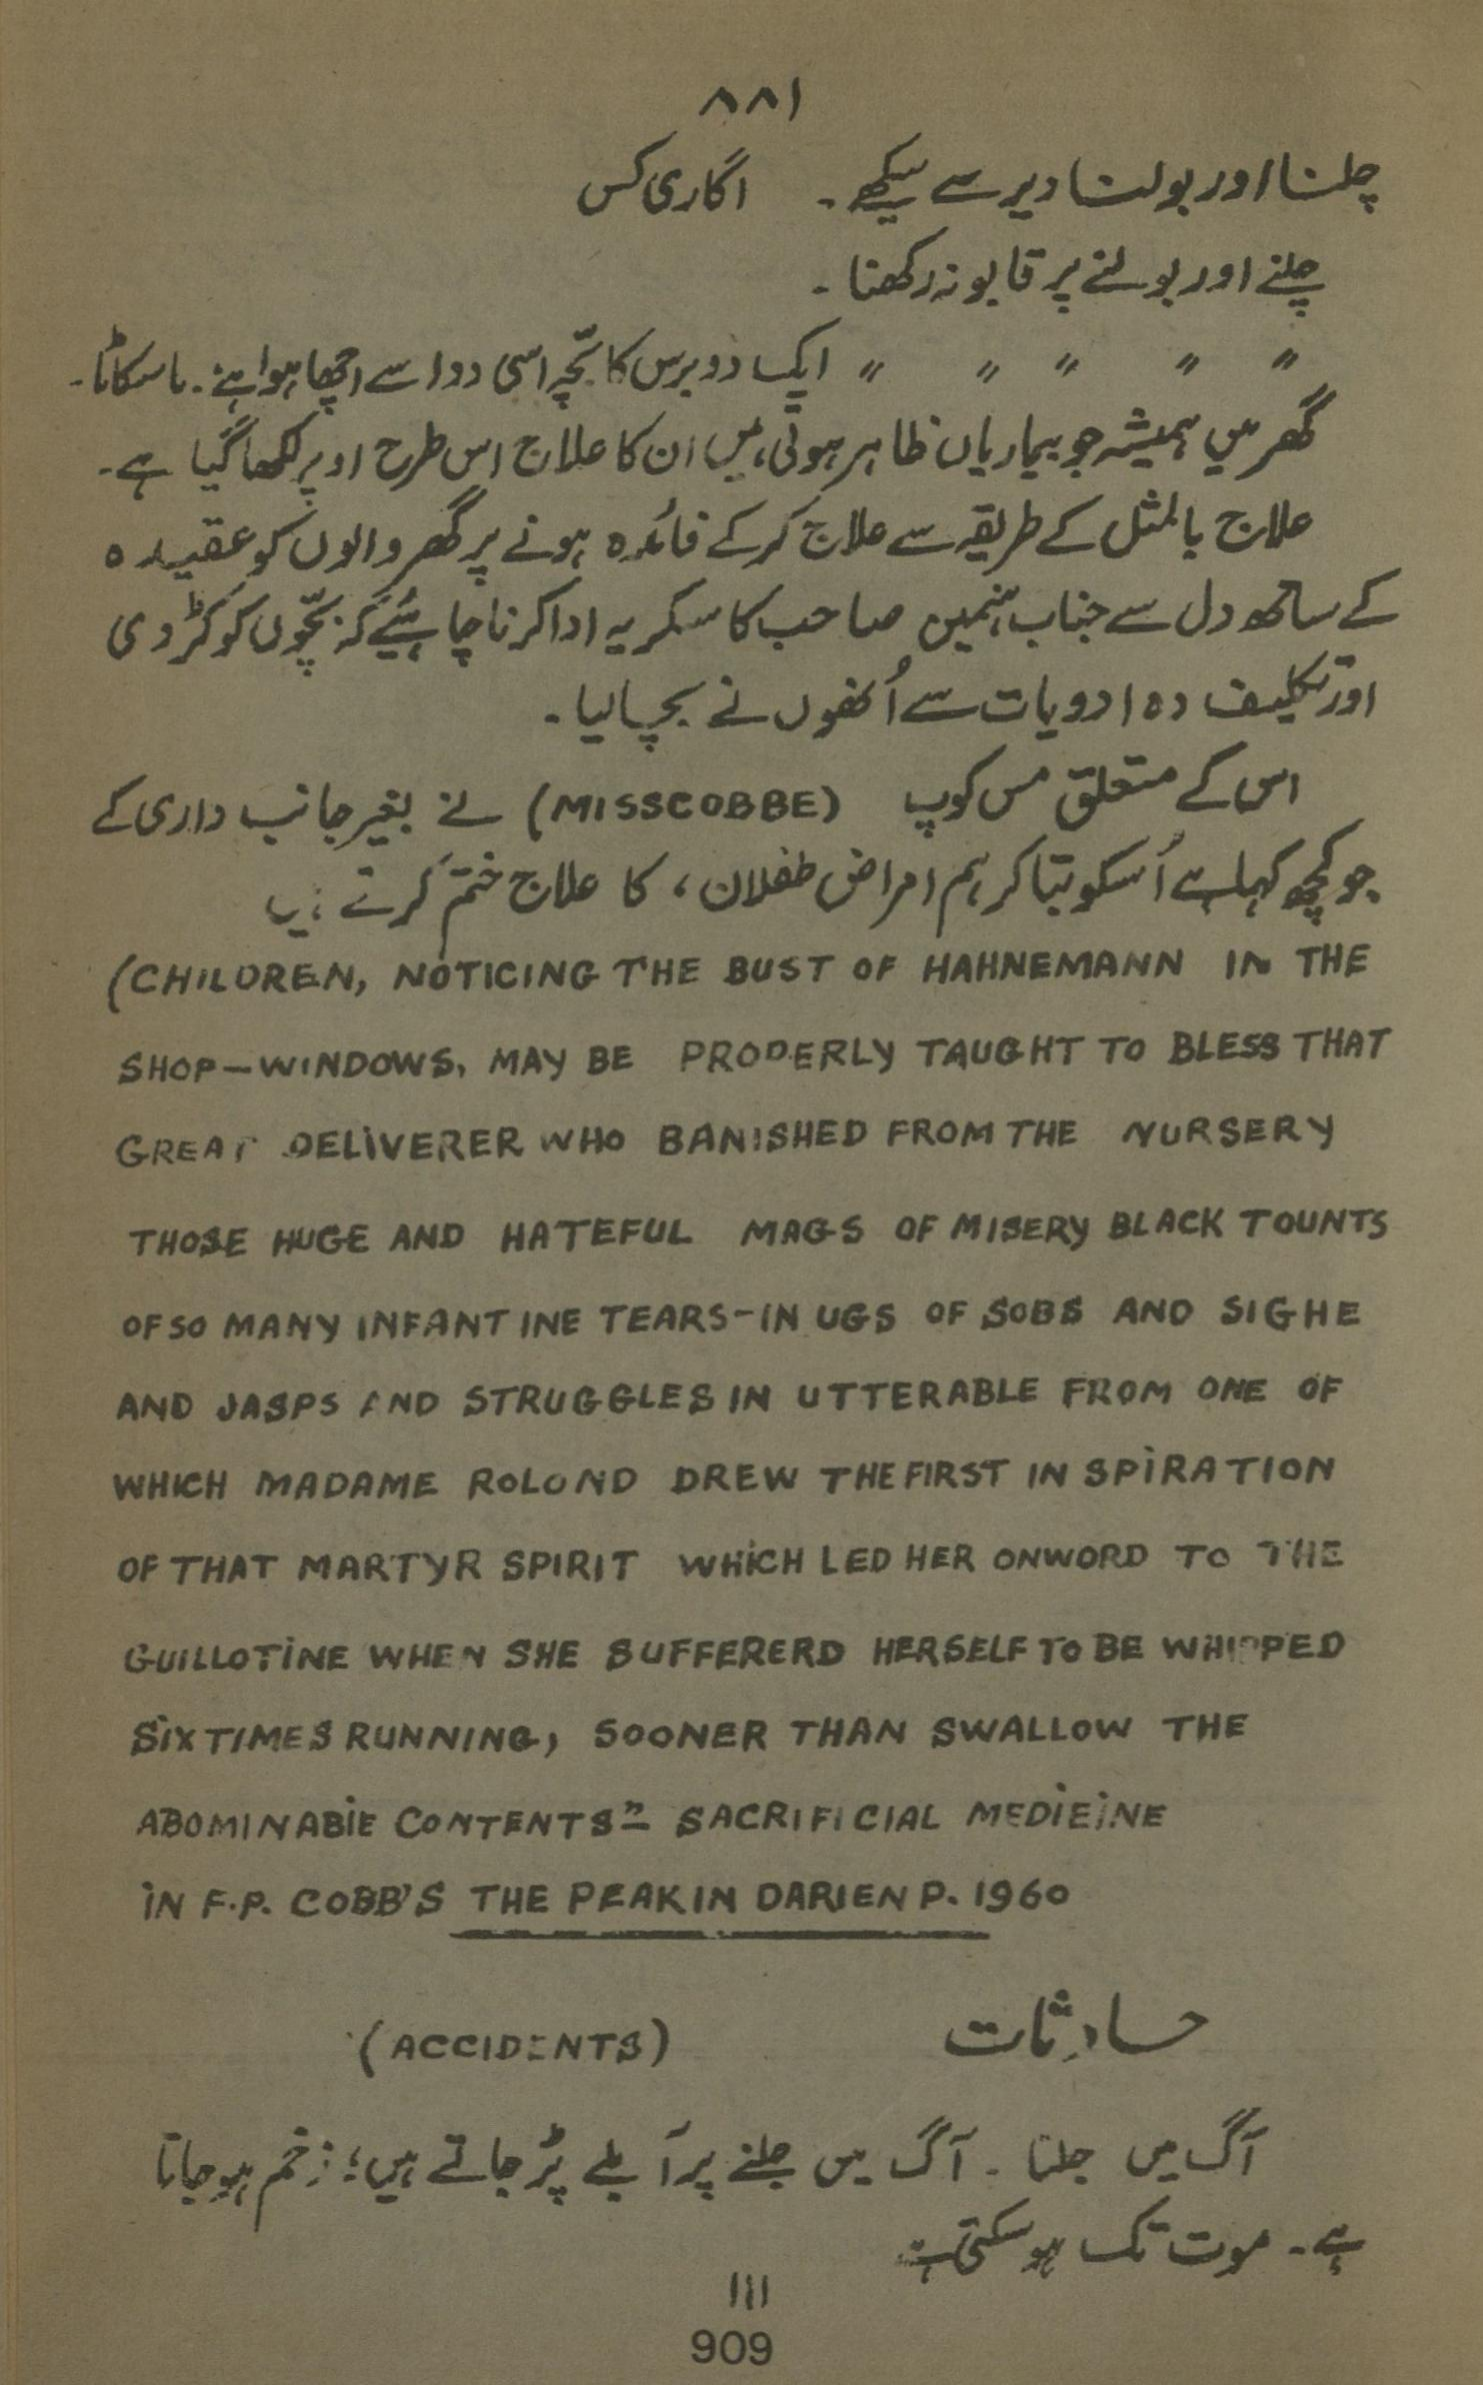 ۸۸۱
چلنا اور بولنا دیر سے سیکھے۔ اگاری کس
چلنے اور بولنے پر قابو نہ رکھنا۔
〃 〃 〃 〃 〃 ایک دو برس کا بچّہ اسی دوا سے اچھا ہوا ہے۔ ماسکاٹا۔
گھر میں ہمیشہ جو بیماریاں ظاہر ہوتی ہیں ان کا علاج اس طرح اوپر لکھا گیا ہے۔
علاج بالمثل کے طریقہ سے علاج کر کے فائدہ ہونے پر گھر والوں کو عقیدہ
کے ساتھ دل سے جناب ہنمین صاحب کا سکریہ ادا کرنا چاہئیے کہ بچّوں کو کڑوی
اور تکلیف دہ ادویات سے اُنھوں نے بچا لیا۔
اس کے متعلق مس کوپ (MISSCOBBE) نے بغیر جانب داری کے
جو کچھ کہا ہے اُسکو بتا کر ہم امراض طفلان، کا علاج ختم کرتے ہیں
(CHILDREN, NOTICING THE BUST OF HAHNEMANN IN THE
SHOP-WINDOWS, MAY BE PROPERLY TAUGHT TO BLESS THAT
GREAT DELIVERER WHO BANISHED FROM THE NURSERY
THOSE HUGE AND HATEFUL MAGS OF MISERY BLACK TOUNTS
OF SO MANY INFANT INE TEARS-IN UGS OF SOBS AND SIGHE
AND JASPS AND STRUGGLES IN UTTERABLE FROM ONE OF
WHICH MADAME ROLOND DREW THE FIRST IN SPIRATION
OF THAT MARTYR SPIRIT WHICH LED HER ONWORD TO THE
GUILLOTINE WHEN SHE SUFFERERD HERSELF TO BE WHIPPED
SIX TIMES RUNNING, SOONER THAN SWALLOW THE
ABOMINABIE CONTENTS"- SACRIFICIAL MEDIEINE
IN F.P. COBB'S THE PEAK IN DARIEN P. 1960
حادثات (ACCIDENTS)
آگ میں جلنا۔ آگ میں جلنے پر آبلے پڑ جاتے ہیں؛ زخم ہو جاتا
ہے۔ موت تک ہو سکتی ہے
111
909